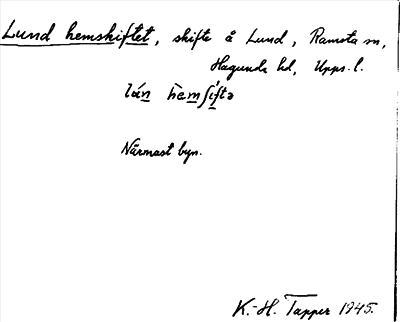 Lund hemskiftet, skifte å Lund, Ramsta sn,
Hagunda hd, Upps. l.
lán hèmʃíftə
Närmast byn.
K.-H. Tapper 1945.